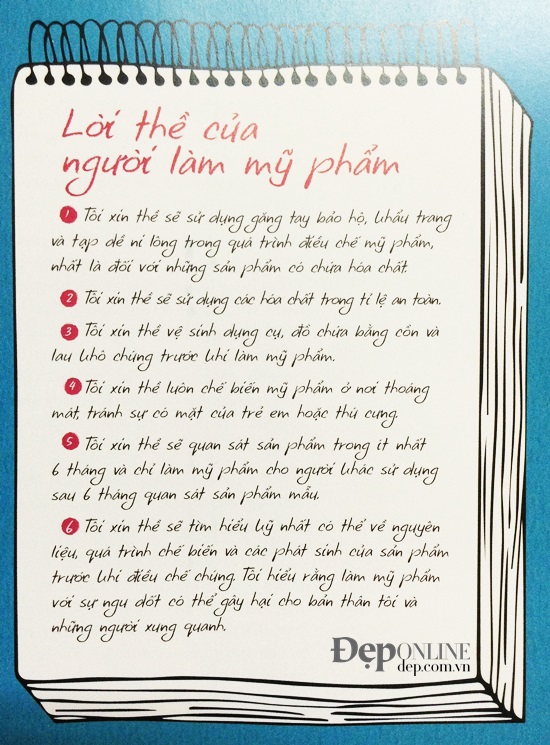 Lời thề của
người làm mỹ phẩm
1 Tôi xin thề sẽ sử dụng găng tay bảo hộ, khẩu trang
và tạp dề ni lông trong quá trình điều chế mỹ phẩm,
nhất là đối với những sản phẩm có chứa hóa chất.
2 Tôi xin thề sẽ sử dụng các hóa chất trong tỉ lệ an toàn.
3 Tôi xin thề vệ sinh dụng cụ, đồ chứa bằng cồn và
lau khô chúng trước khi làm mỹ phẩm.
4 Tôi xin thề luôn chế biến mỹ phẩm ở nơi thoáng
mát, tránh sự có mặt của trẻ em hoặc thú cưng.
5 Tôi xin thề sẽ quan sát sản phẩm trong ít nhất
6 tháng và chỉ làm mỹ phẩm cho người khác sử dụng
sau 6 tháng quan sát sản phẩm mẫu.
6 Tôi xin thề sẽ tìm hiểu kỹ nhất có thể về nguyên
liệu, quá trình chế biến và các phát sinh của sản phẩm
trước khi điều chế chúng. Tôi hiểu rằng làm mỹ phẩm
với sự ngu dốt có thể gây hại cho bản thân tôi và
những người xung quanh.
ĐẹpONLINE
dep.com.vn